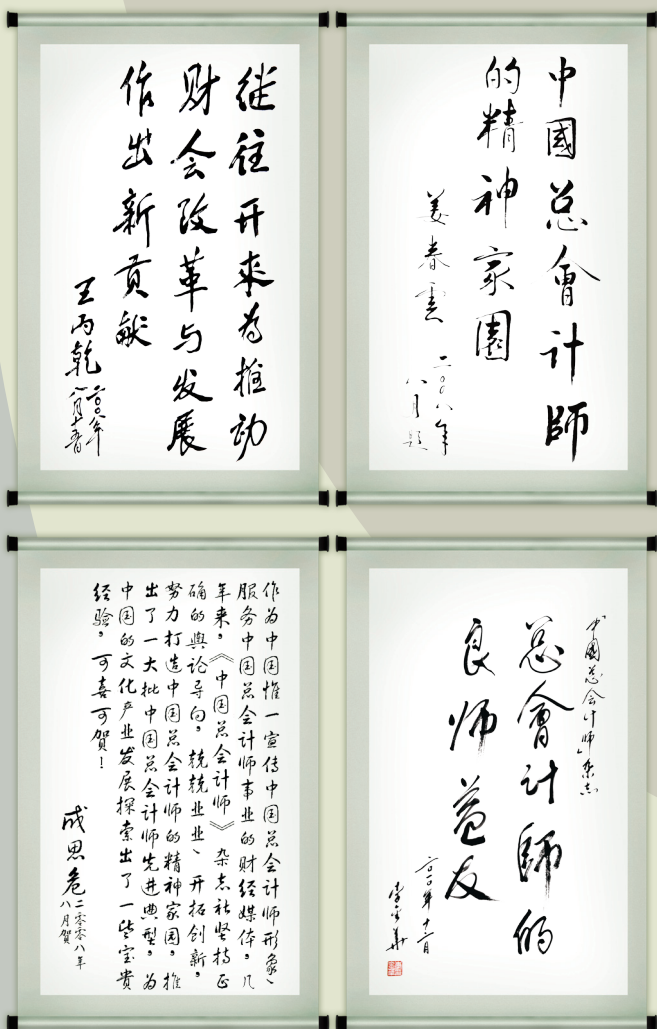 继往开来为推动
财会改革与发展
作出新贡献
王丙乾
二〇〇八年
八月十五日
中國总會计師
的精神家園
姜春雲
二〇〇八年
八月题
作为中国惟一宣传中国总会计师形象、
服务中国总会计师事业的财经媒体，几
年来，《中国总会计师》杂志社坚持正
确的舆论导向，兢兢业业、开拓创新，
努力打造中国总会计师的精神家园，推
出了一大批中国总会计师先进典型，为
中国的文化产业发展探索出了一些宝贵
经验，可喜可贺！
成思危
二零零八年
八月贺
《中國总会计师》杂志
总會计師的
良师益友
李金华